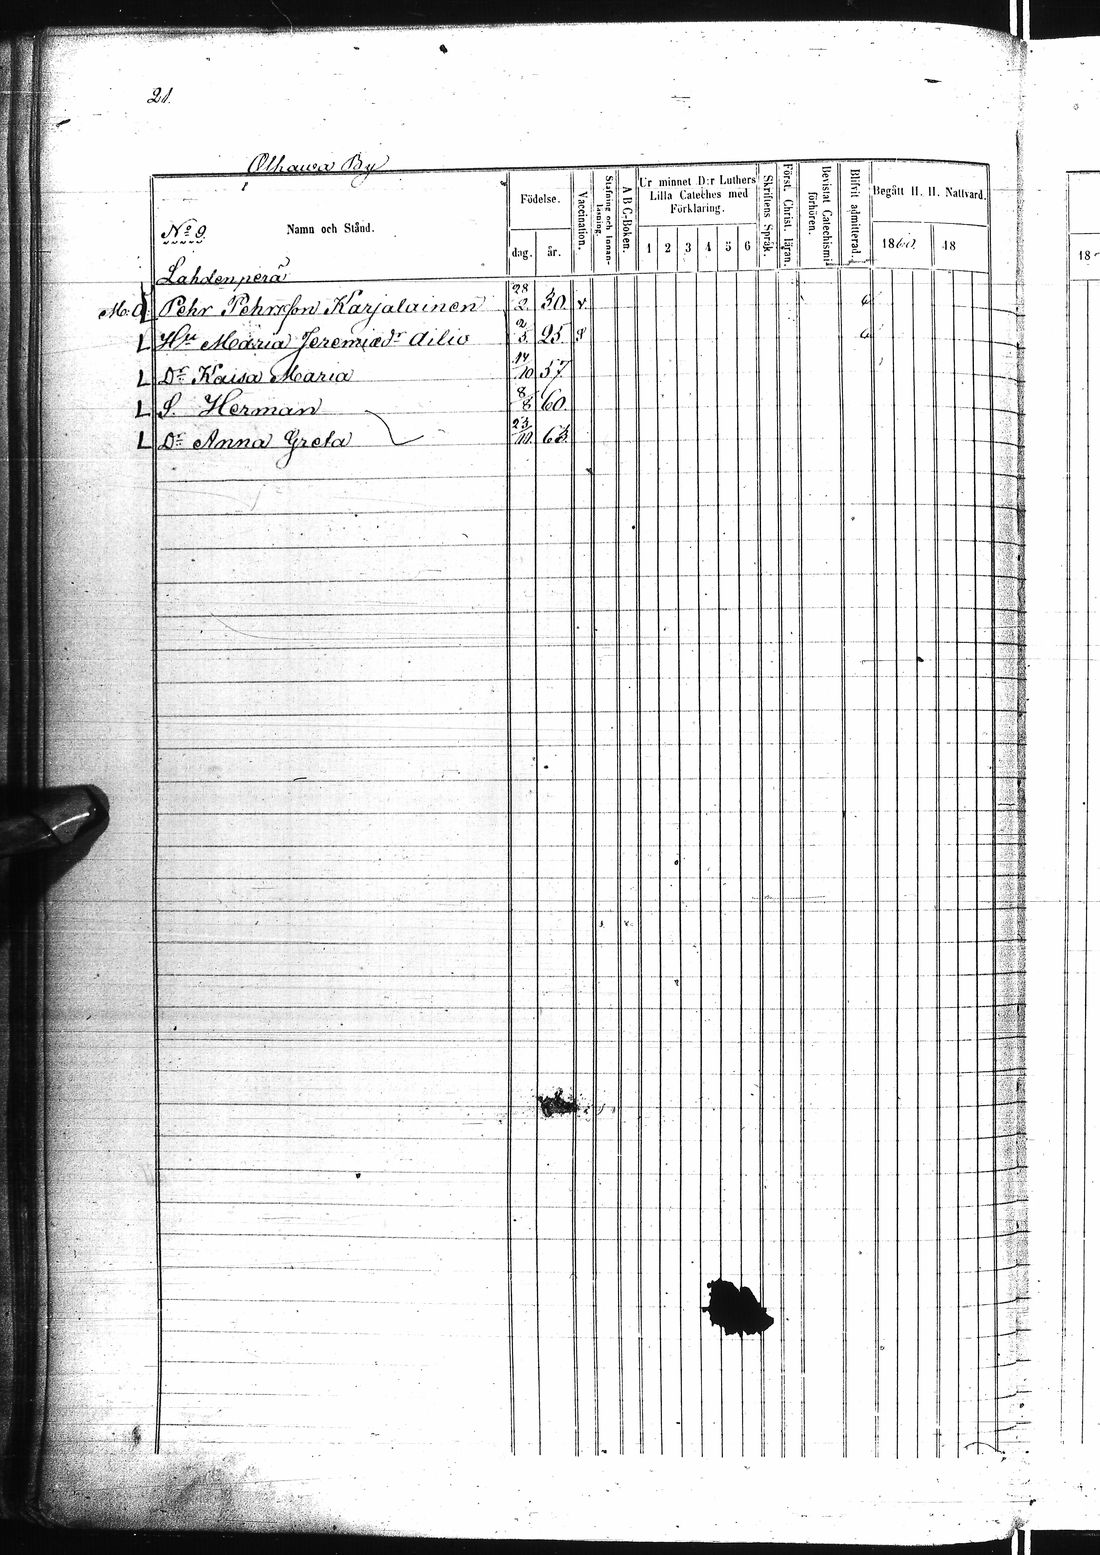 21.
Olhawa By
No 9.
Namn och Stånd.
Födelse.
dag. år.
Vaccination.
Stafning och Innanläsning.
A B C-Boken.
Ur minnet D:r Luthers Lilla Cateches med Förklaring.
1 2 3 4 5 6
Skriftens Språk.
Först. Christ. läran.
Bevistat Catechismi förhören.
Blifvit admitterad.
Begått H. H. Nattvard.
1860. 18
18
Lahdenperä
Pehr Pehrsson Karjalainen 28/2 30. v
L Hu Maria Jeremiædr Ailio 2/5 25.
L Dr Kaisa Maria 14/10 57.
L S. Herman 8/8 60.
L Dr Anna Greta 23/10 63.